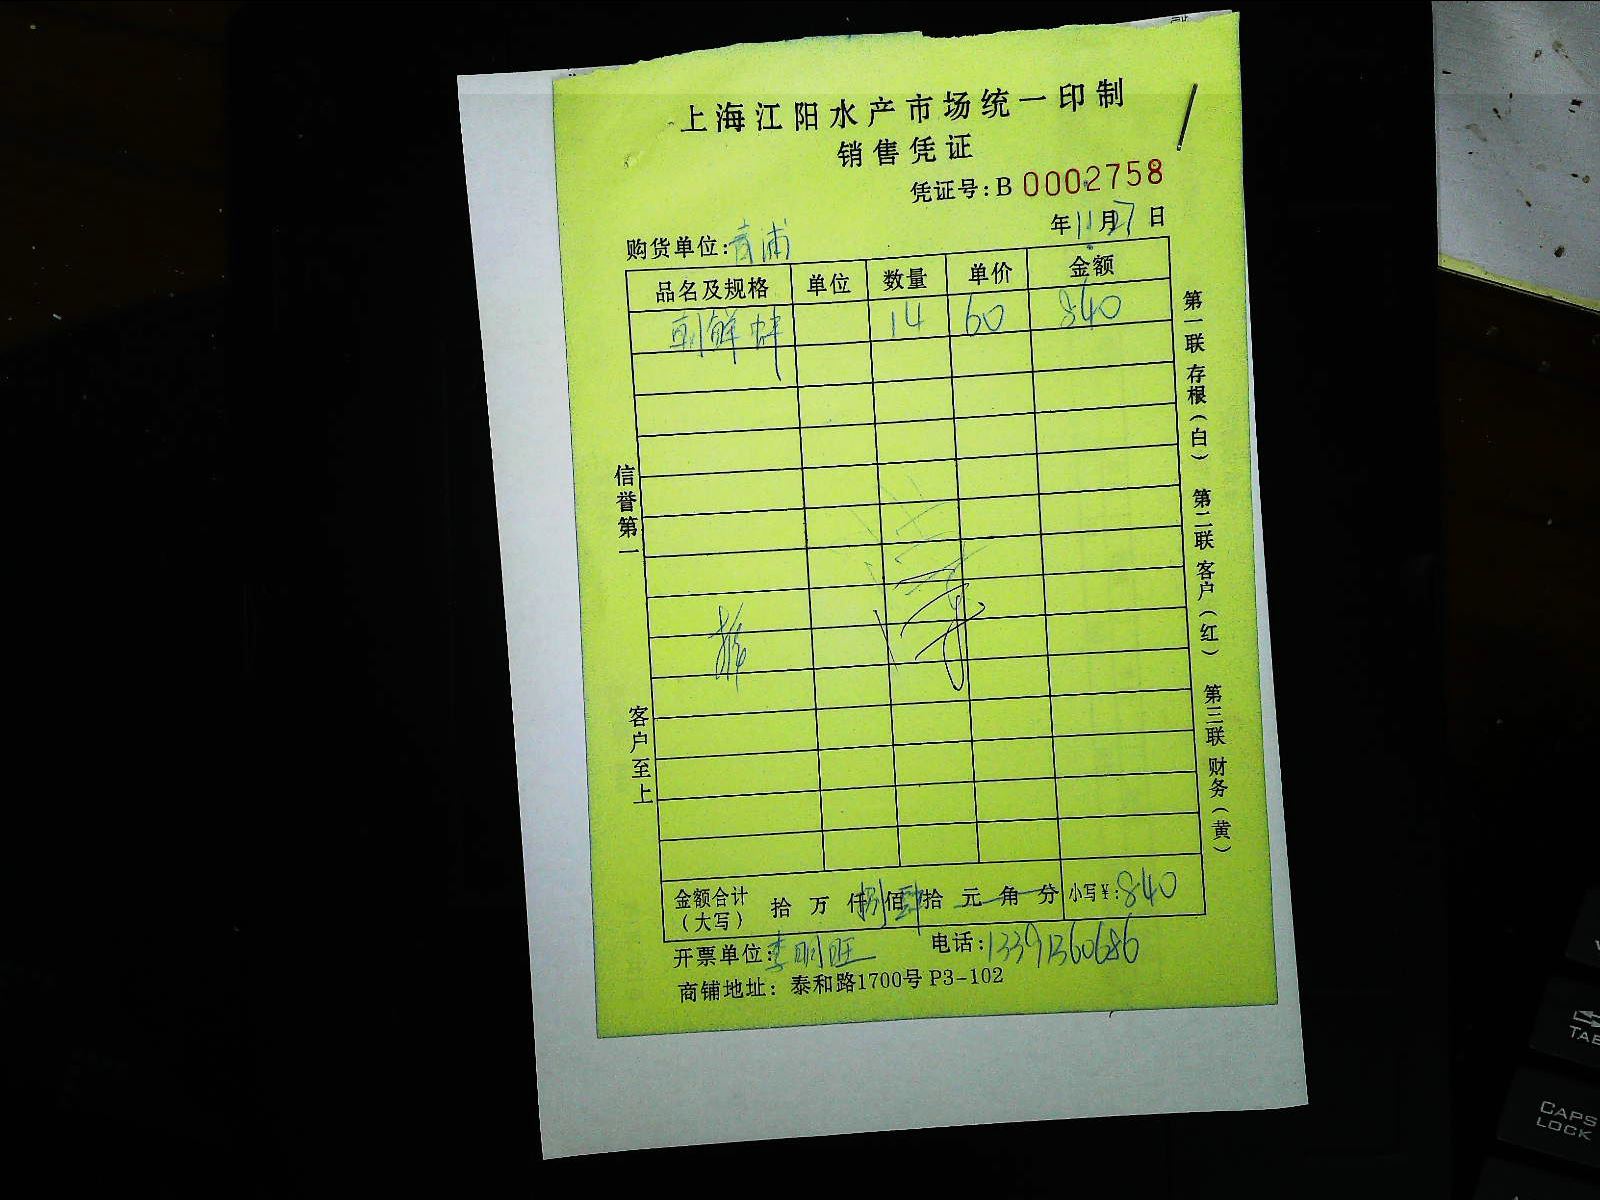 上海江阳水产市场统一印制
销售凭证
凭证号:B 0002758
年11月27日
购货单位:青浦
品名及规格 单位 数量 单价 金额
朝鲜蚌 14 60 840
信誉第一
客户至上
第一联 存根(白) 第二联 客户(红) 第三联 财务(黄)
金额合计(大写) 拾 万 仟捌佰肆拾 元 角 分 小写¥:840
开票单位:李明旺 电话:13391360686
商铺地址: 泰和路1700号 P3-102
TAB
CAPS
LOCK